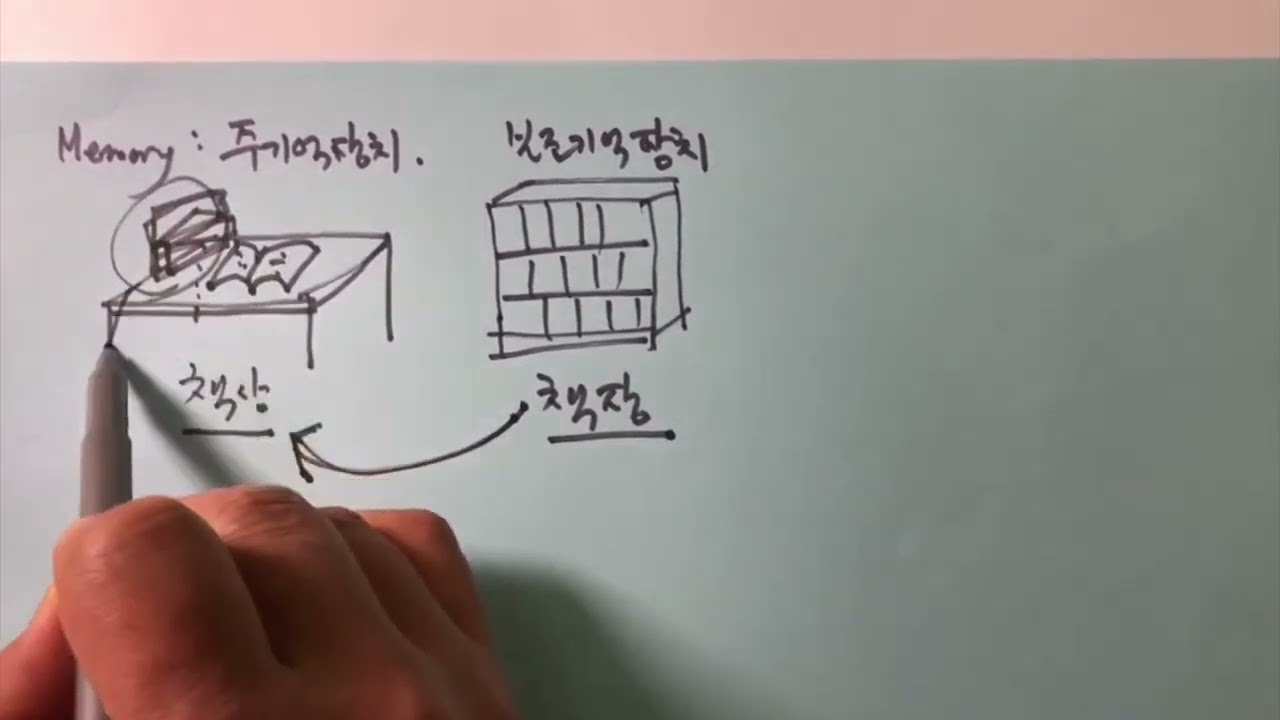 Memory : 주기억장치.
보조기억장치
책상
책장